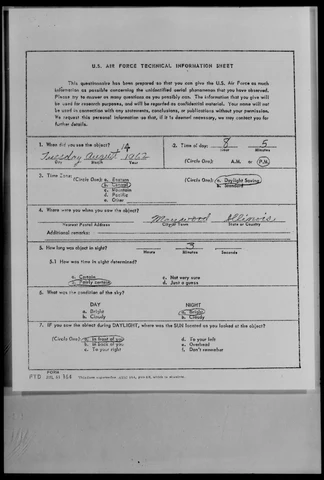 U.S. AIR FORCE TECHNICAL INFORMATION SHEET
This questionnaire has been prepared so that you can give the U.S. Air Force as much
information as possible concerning the unidentified aerial phenomenon that you have observed.
Please try to answer as many questions as you possibly can. The information that you give will
be used for research purposes, and will be regarded as confidential material. Your name will not
be used in connection with any statements, conclusions, or publications without your permission.
We request this personal information so that, if it is deemed necessary, we may contact you for
further details.
1. When did you see the object?
Tuesday August 14 1962
Day Month Year
2. Time of day: 8 5
Hour Minutes
(Circle One): A.M. or P.M.
3. Time Zone:
(Circle One): a. Eastern
b. Central
c. Mountain
d. Pacific
e. Other
(Circle One): a. Daylight Saving
b. Standard
4. Where were you when you saw the object?
Maywood Illinois
Nearest Postal Address City or Town State or Country
Additional remarks:
5. How long was object in sight? 3
Hours Minutes Seconds
5.1 How was time in sight determined?
a. Certain c. Not very sure
b. Fairly certain d. Just a guess
6. What was the condition of the sky?
DAY NIGHT
a. Bright a. Bright
b. Cloudy b. Cloudy
7. IF you saw the object during DAYLIGHT, where was the SUN located as you looked at the object?
(Circle One): a. In front of you d. To your left
b. In back of you e. Overhead
c. To your right f. Don't remember
FORM
FTD 164